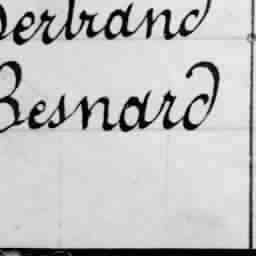 Bertrand
Besnard